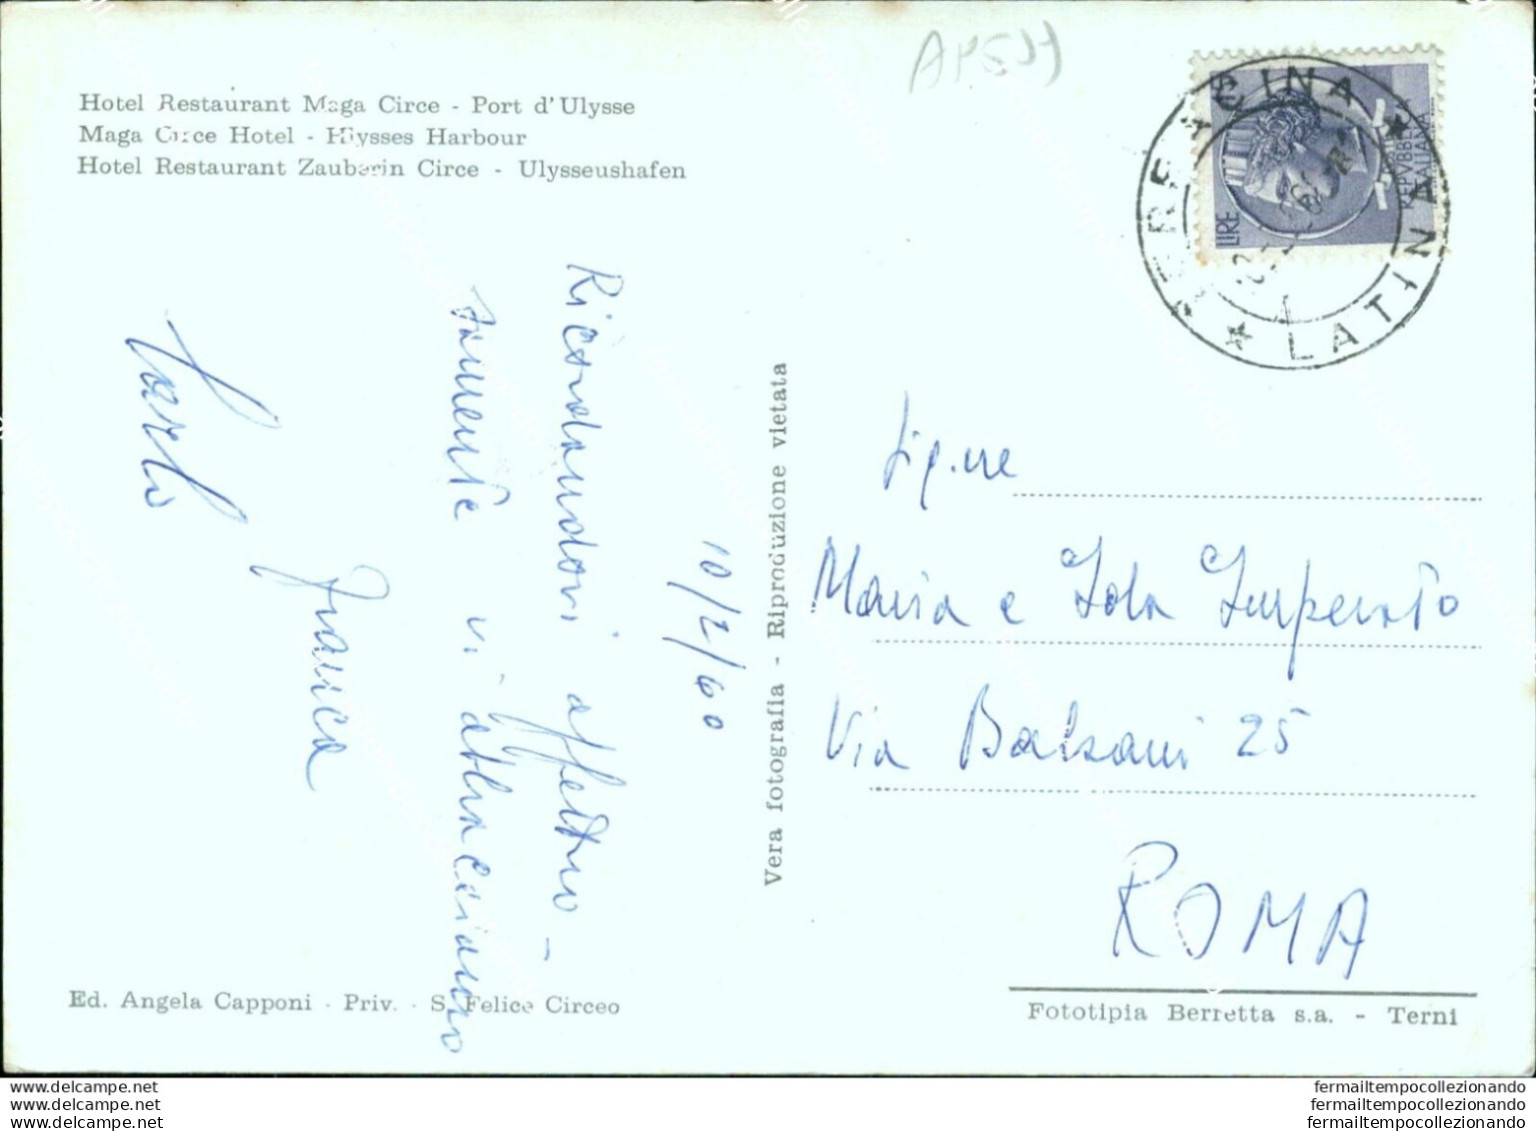 Hotel Restaurant Maga Circe - Port d'Ulysse
Maga Circe Hotel - Hlysses Harbour
Hotel Restaurant Zauberin Circe - Ulysseushafen
TERRACINA
★ LATINA ★
LIRE
REPVBBLICA
ITALIANA
10/2/60
Ricordandovi affettuo-
samente vi abbracciamo
Franca
Carlo
Vera fotografia - Riproduzione vietata
Sig.ne
Maria e Iola Imperato
Via Balzani 25
ROMA
Ed. Angela Capponi - Priv. - S. Felice Circeo
Fototipia Berretta s.a. - Terni
www.delcampe.net
www.delcampe.net
www.delcampe.net
fermailtempocollezionando
fermailtempocollezionando
fermailtempocollezionando